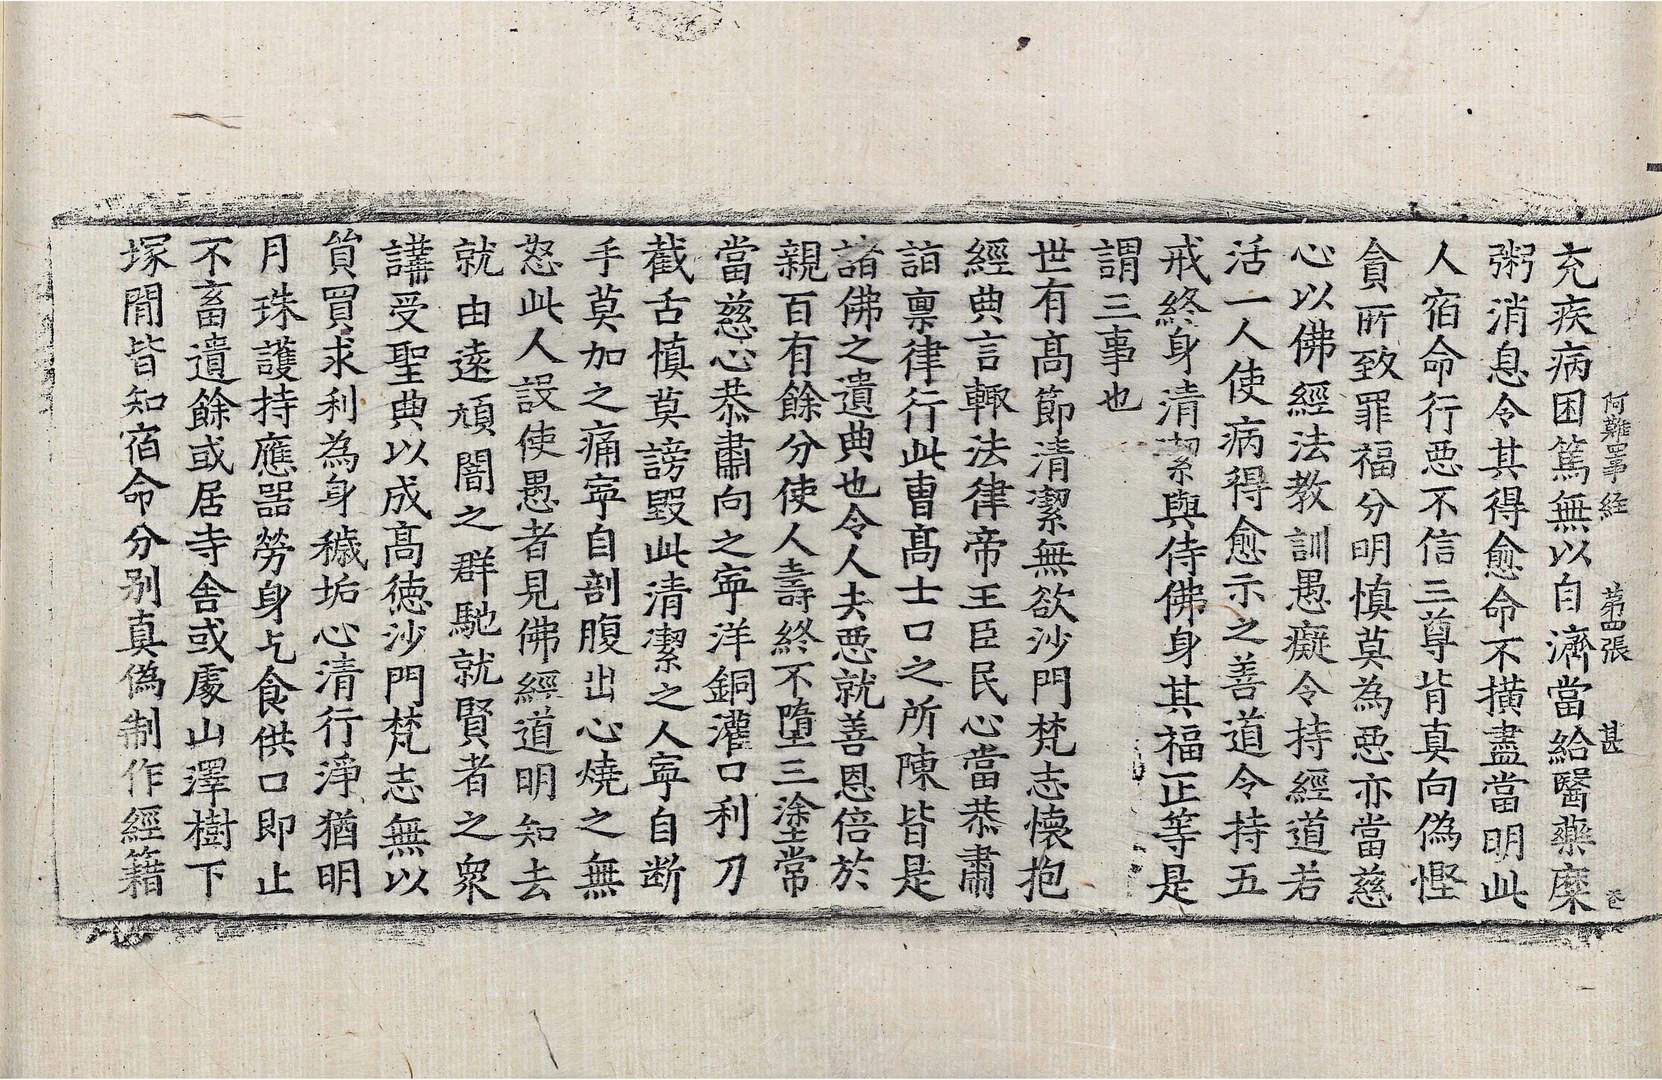 阿難四事経 第四張 甚
充疾病困篤無以自濟當給醫藥糜
粥消息令其得愈命不撗盡當明此
人宿命行惡不信三尊背真向偽慳
貪所致罪福分明慎莫為惡亦當慈
心以佛經法教訓愚癡令持經道若
活一人使病得愈示之善道令持五
戒終身清潔與侍佛身其福正等是
謂三事也
世有髙節清潔無欲沙門梵志懐抱
經典言輙法律帝王臣民心當恭肅
諮稟律行此曺髙士口之所陳皆是
諸佛之遺典也令人去惡就善恩倍於
親百有餘分使人壽終不墮三塗常
當慈心恭肅向之寜洋銅灌口利刀
截舌慎莫謗毀此清潔之人寜自断
手莫加之痛寜自剖腹出心燒之無
怒此人設使愚者見佛經道明知去
就由逺頑闇之群馳就賢者之衆
講受聖典以成髙徳沙門梵志無以
貿買求利為身穢垢心清行淨猶明
月珠護持應噐勞身乞食供口即止
不畜遺餘或居寺舎或處山澤樹下
塚閒皆知宿命分别真偽制作經籍